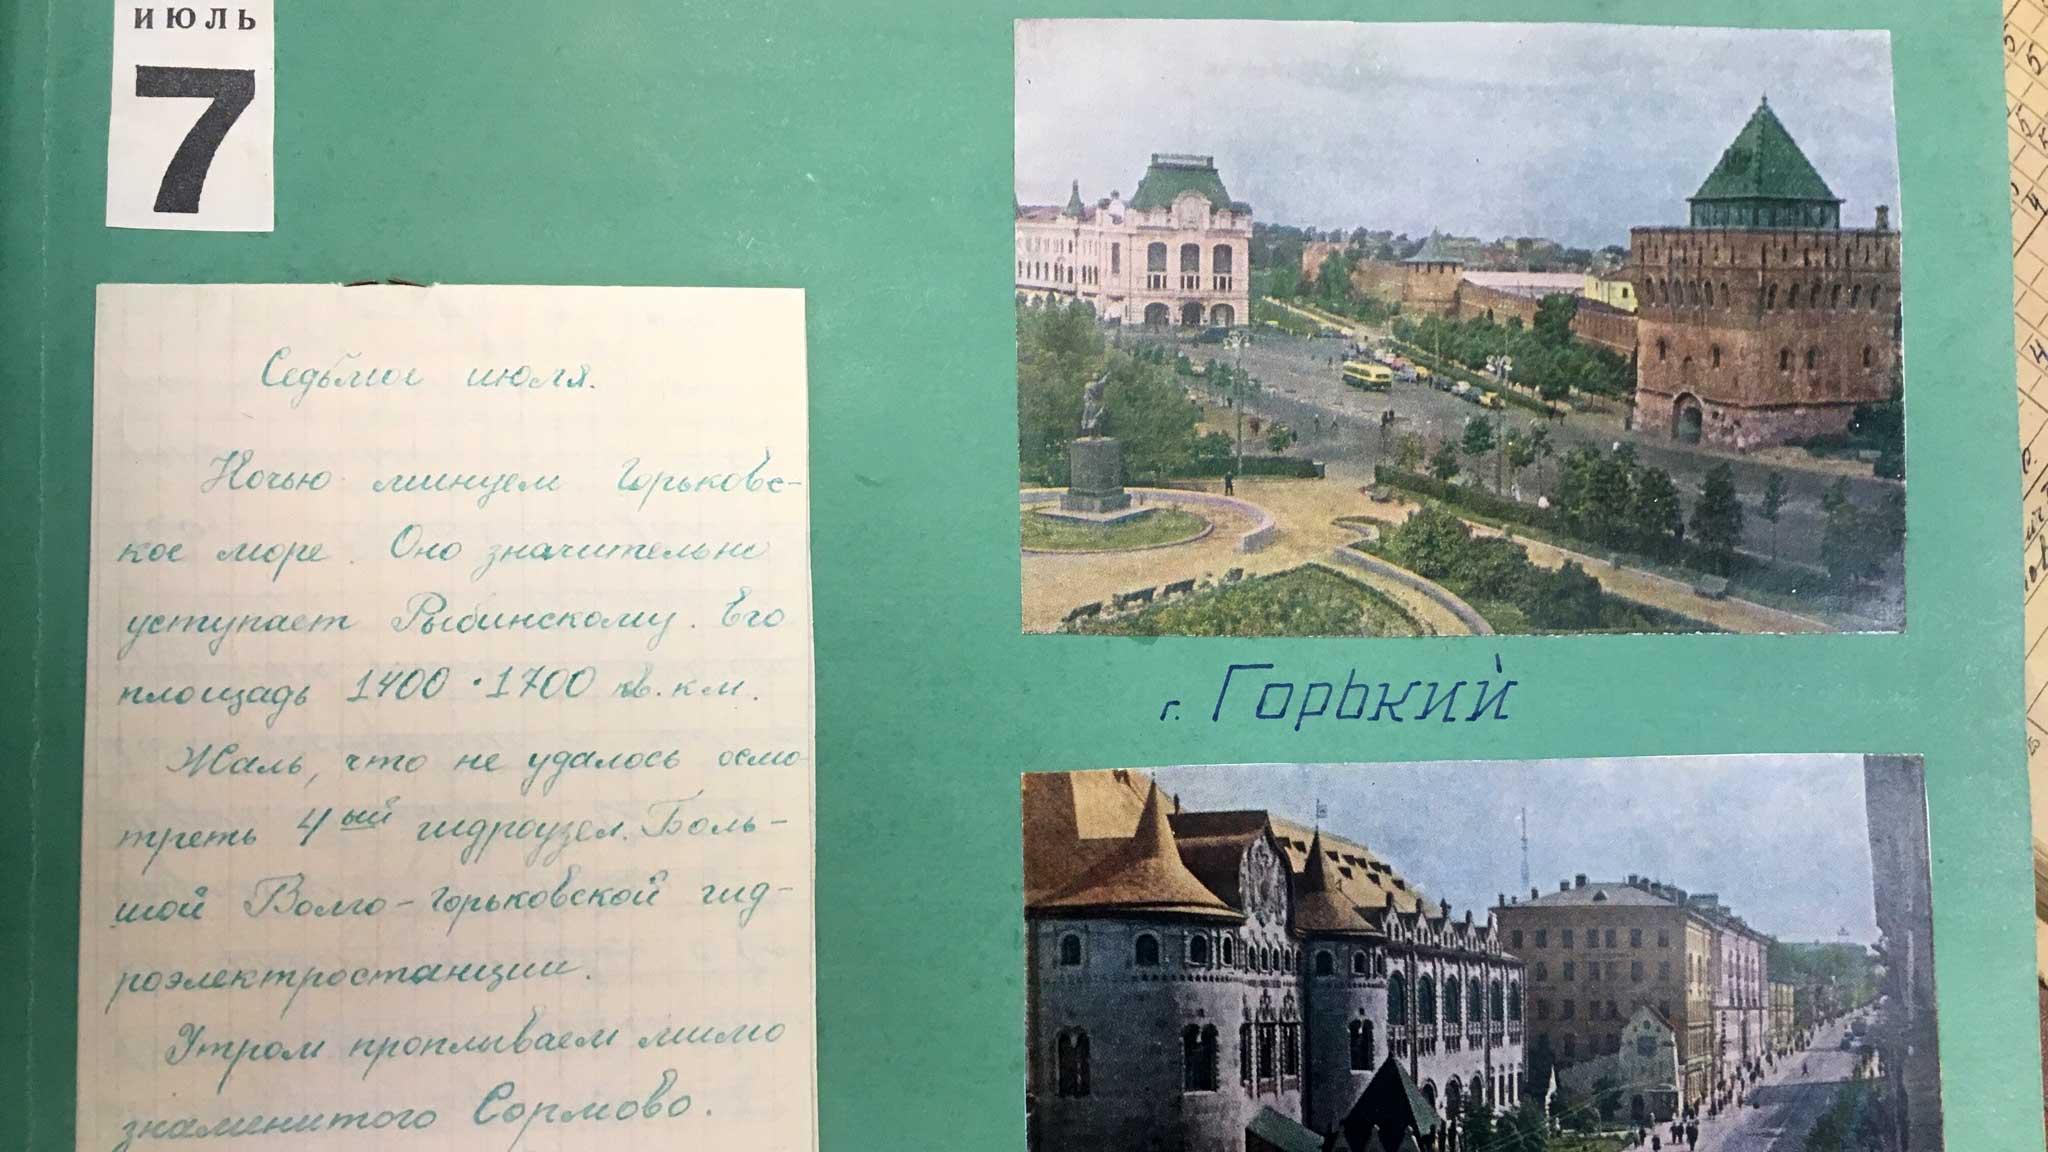 ИЮЛЬ
7
Седьмое июля.
Ночью минуем Горьковс-
кое море. Оно значительно
уступает Рыбинскому. Его
площадь 1400 · 1700 кв. км.
Жаль, что не удалось осмо
треть 4ый гидроузел. Боль-
шой Волго-горьковской гид-
роэлектростанции.
Утром проплываем мимо
знаменитого Сормово.
г. Горький